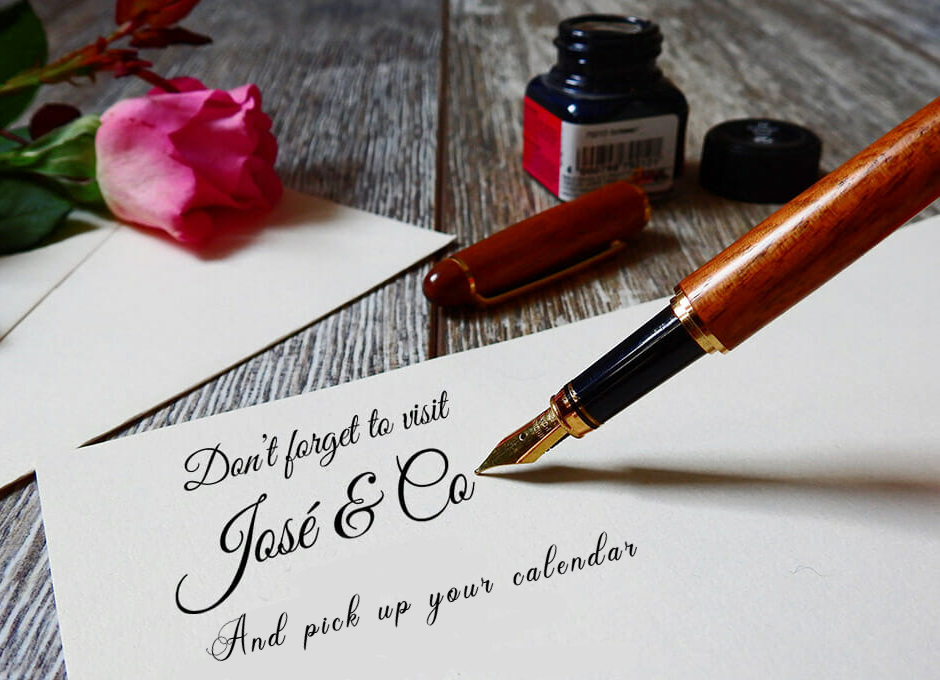 Don't forget to visit
José & Co
And pick up your calendar